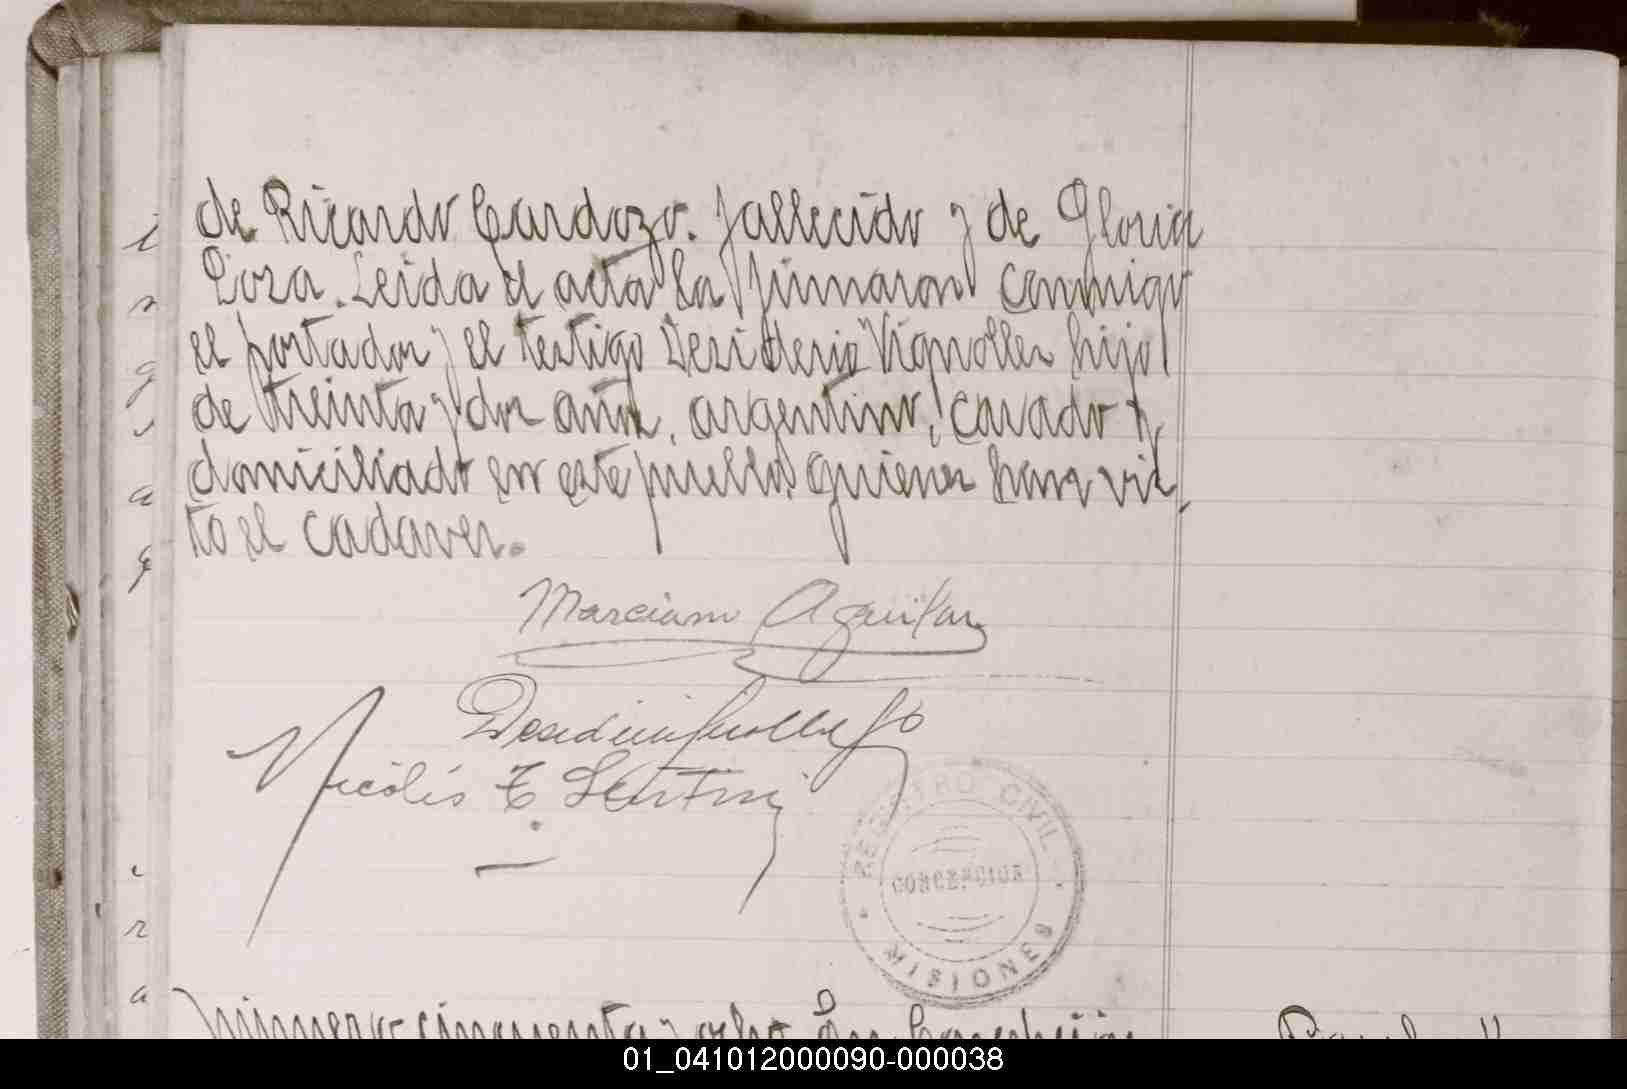 de Ricardo Cardozo. fallecido y de Gloria
Leida el acta la firmaron conmigo
el portador y el testigo Desiderio Vignolles hijo
de treinta y dos años, argentino, casado y
domiciliado en este pueblo, quienes han vis
to el cadaver.
Marciano Aguilar
Nicolás
REGISTRO CIVIL
CONCEPCION
MISIONES
número cincuenta y ocho En Concepción
01_041012000090-000038